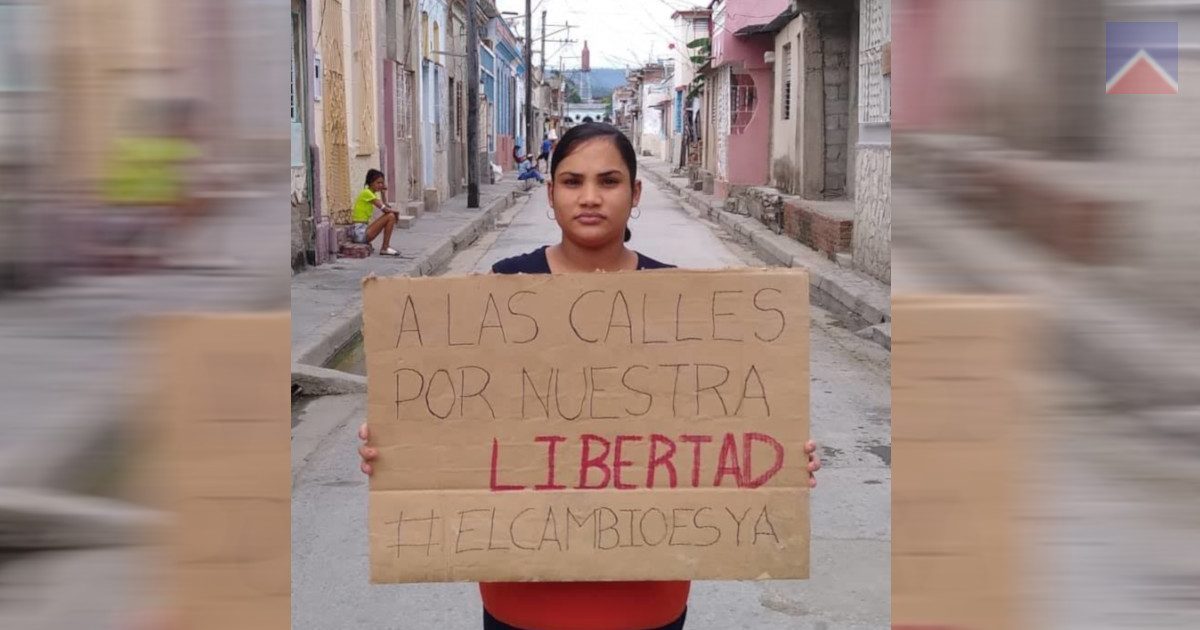 A LAS CALLES
POR NUESTRA
LIBERTAD
#ELCAMBIOESYA